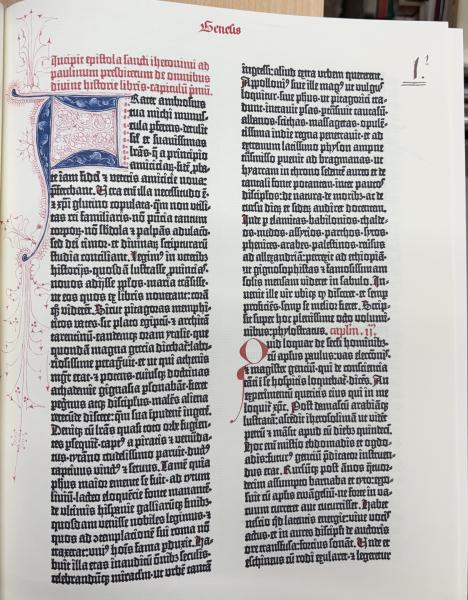 Genesis
I.
Incipit epistola sancti iheronimi ad
paulinum presbiterum de omnibus
divine historie libris. capitulū pͥmū.
Frater ambrosius
tua michi munus-
cula pferens. detulit
sil et suauissimas
lr̄as. q̄ a principio
amicicia℞. fidē pba-
te iam fidei et veteris amicicie noua:
pferebant. Uera em̄ illa necessitudo ē.
et xp̄i glutino copulata. qm̄ non vtili-
tas rei familiaris. nō pn̄cia tantum
corpo℞. nō sbdola et palpās adulacō.
sed dei timor. et diuina℞ scripturarū
studia conciliant. Legimꝰ in veterib
historijs. quosdā lustrasse puīncias.
nouos adijsse pplos. maria trāsisse.
ut eos quos ex libris nouerant: corā
q̄ȝ viderēt. Sicut pitagoras memphi-
ticos vates. sic plato egiptū. et archita
tarentinū. eandemq̄ȝ oram ytalie. que
quondā magna grecia dicebat̄: labo-
riosissime peragrauit. et ut qui athenis
mgr̄ erat. et potens. cuiusq̄ȝ doctrinas
achademie gignasia psonabāt. fieret
peginus atq̄ȝ discipulꝰ. malēs aliena
verecūde discere: qm̄ sua īpudent ingerē.
Deniq̄ȝ cū lr̄as quasi toto orbe fugien-
tes psequit̄. capt a piratis et venūda-
tus. tyrāno crudelissimo paruit. ductꝰ
captiuus vinctꝰ et seruus. Tamē quia
phūs maior emente se fuit. ad tytum
liuiū. lacteo eloquēcie fonte manantē.
de vltimis hispanie galliarūq̄ȝ finibȝ.
quosdam venisse nobiles legimus. et
quos ad ɔtemplacionē sui roma nō
traxerat: vniꝰ hoīs fama pduxit. Ha-
buit illa etas inauditū oīnibȝ seculis.
celebrandūq̄ȝ miraclm̄. ut vrbē tantā
ingressi: aliud extra vrbem quererent.
Apolloniꝰ siue ille magꝰ ut vulgus
loquitur. siue phūs. ut pitagorici tra-
dunt. intrauit psas. ptrāsiuit caucasū.
albanos. scithas. massagetas. opulē-
tissima indie regna penetrauit. et ad
extremum latissimo physon amne
trāsmisso puenit ad bragmanas. ut
hyarcam in throno sedentē aureo et de
tantali fonte potantem. inter paucos
discipłos: de natura. de moribȝ. ac de
cursu die℞ et sidȩ℞. audiret docentem.
Inde p elamitas. babilonios. chalde-
os. medos. assyrios. parthos. syros.
phenices. arabes. palestinos. reūsus
ad allexandriā: perrexit ad ethiopiā.
ut gignosophistas et famosissimam
solis mensam videret in sabulo. In-
uenit ille vir vbiq̄ȝ qd̄ disceret. et semp
proficiēs. semp se melior fieret. Scrip-
sit super hoc plenissime octo volumi-
nibus: phylostratus. capłm. IIͫ.
Quid loquar de secłi hominibȝ.
cū apłus paulus. vas electōnis.
et magister gentiū. qui de consciencia
tāti ī se hospitis loquebat̄: dicēs. An
experimentū querits eiꝰ qui in me
loquit̄ xp̄c. Post damascū arabiāq̄ȝ
lustratā: ascēdit iherosolimā ut vidēt
petrū. et māsit apud eū diebȝ quindeci.
Hoc em̄ misterio ebdomadis et ogdo-
adis: futurꝰ gentiū pdicator instruen-
dus erat. Rursūq̄ȝ post ānos q̄tuor-
decim assumpto barnaba et tyto: expo-
suit cū apłis ewāgeliū. ne forte in va-
cuum curreret aut cucurrisset. Habet
nescio qd̄ latentis energie: viue vocꝭ
actus. et in aures discipłi de auctoris
ore transfusa: forcius sonat. Unde et
eschineus cū rodi exularet. et legeretur